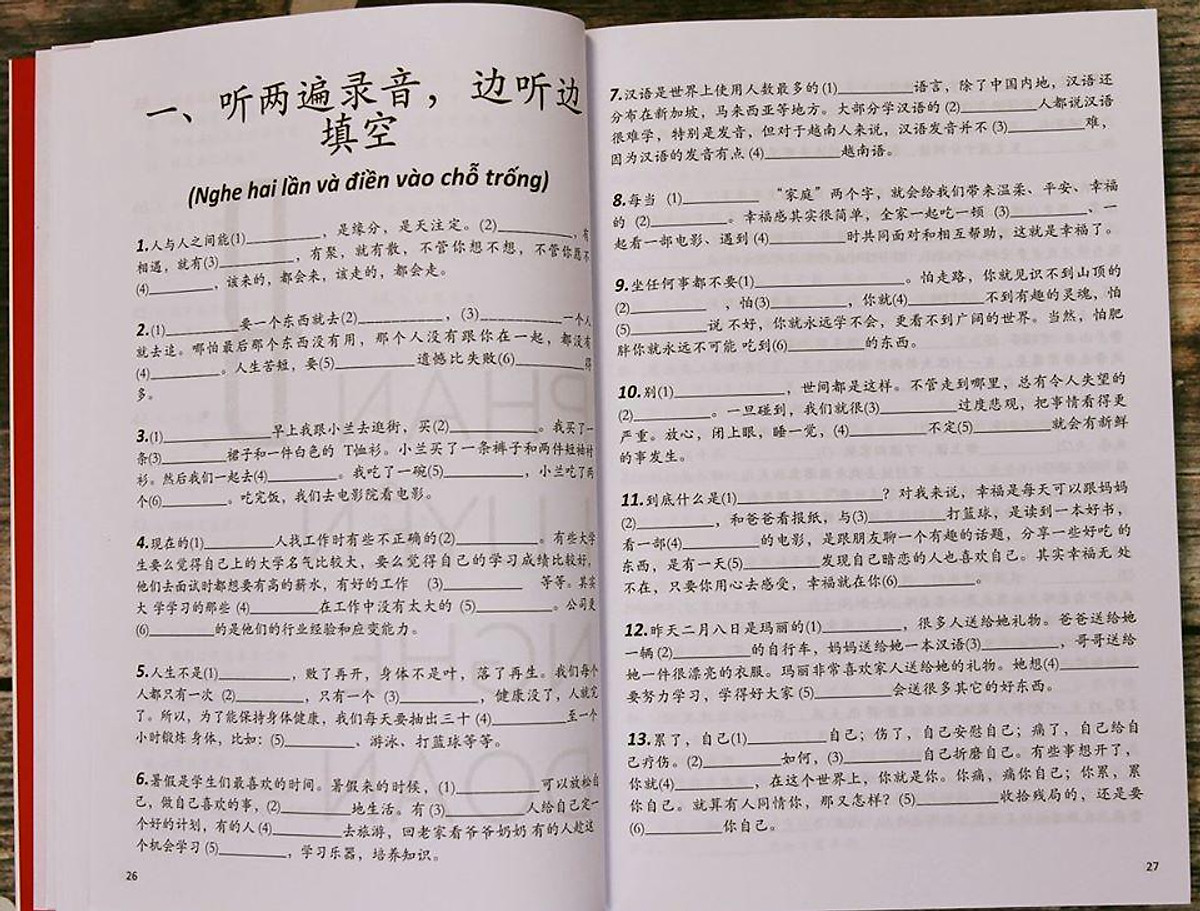 一、听两遍录音，边听边
填空
(Nghe hai lần và điền vào chỗ trống)
1.人与人之间能(1)__________，是缘分，是天注定。(2)__________，有
相遇，就有(3)__________，有聚，就有散，不管你想不想，不管你愿不
(4)__________，该来的，都会来，该走的，都会走。
2.(1)__________要一个东西就去(2)__________，(3)__________一个人
就去追。哪怕最后那个东西没有用，那个人没有跟你在一起，都没有
(4)__________。人生苦短，要(5)__________遗憾比失败(6)__________得
多。
3.(1)__________早上我跟小兰去逛街，买(2)__________。我买了一
条(3)__________裙子和一件白色的 T恤衫。小兰买了一条裤子和两件短袖衬
衫。然后我们一起去(4)__________。我吃了一碗(5)__________，小兰吃了两
个(6)__________。吃完饭，我们去电影院看电影。
4.现在的(1)__________人找工作时有些不正确的(2)__________。有些大学
生要么觉得自己上的大学名气比较大，要么觉得自己的学习成绩比较好，
他们去面试时都想要有高的薪水，有好的工作 (3)__________ 等等。其实
大学学习的那些 (4)__________在工作中没有太大的 (5)__________。公司更
(6)__________的是他们的行业经验和应变能力。
5.人生不是(1)__________，败了再开，身体不是叶，落了再生。我们每个
人都只有一次 (2)__________，只有一个 (3)__________，健康没了，人就完
了。所以，为了能保持身体健康，我们每天要抽出三十 (4)__________至一个
小时锻炼身体，比如：(5)__________、游泳、打篮球等等。
6.暑假是学生们最喜欢的时间。暑假来的时候，(1)__________可以放松自
己，做自己喜欢的事，(2)__________地生活。有 (3)__________人给自己定一
个好的计划，有的人(4)__________去旅游，回老家看爷爷奶奶有的人趁这
个机会学习 (5)__________，学习乐器，培养知识。
26
7.汉语是世界上使用人数最多的 (1)__________语言，除了中国内地，汉语还
分布在新加坡，马来西亚等地方。大部分学汉语的 (2)__________人都说汉语
很难学，特别是发音，但对于越南人来说，汉语发音并不 (3)__________难，
因为汉语的发音有点 (4)__________越南语。
8.每当 (1)__________ “家庭”两个字，就会给我们带来温柔、平安、幸福
的 (2)__________。幸福感其实很简单，全家一起吃一顿 (3)__________、一
起看一部电影、遇到 (4)__________时共同面对和相互帮助，这就是幸福了。
9.坐任何事都不要(1)__________。怕走路，你就见识不到山顶的
(2)__________ ，怕(3)__________，你就(4)__________不到有趣的灵魂，怕
(5)__________说不好，你就永远学不会，更看不到广阔的世界。当然，怕肥
胖你就永远不可能 吃到(6)__________的东西。
10.别(1)__________，世间都是这样。不管走到哪里，总有令人失望的
(2)__________。一旦碰到，我们就很(3)__________过度悲观，把事情看得更
严重。放心，闭上眼，睡一觉，(4)__________不定(5)__________就会有新鲜
的事发生。
11.到底什么是(1)__________？对我来说，幸福是每天可以跟妈妈
(2)__________，和爸爸看报纸，与(3)__________打篮球，是读到一本好书，
看一部(4)__________的电影，是跟朋友聊一个有趣的话题，分享一些好吃 的
东西，是有一天(5)__________发现自己暗恋的人也喜欢自己。其实幸福无 处
不在，只要你用心去感受，幸福就在你(6)__________。
12.昨天二月八日是玛丽的(1)__________，很多人送给她礼物。爸爸送给她
一辆(2)__________的自行车，妈妈送给她一本汉语(3)__________，哥哥送给
她一件很漂亮的衣服。玛丽非常喜欢家人送给她的礼物。她想(4)__________
要努力学习，学得好大家 (5)__________会送很多其它的好东西。
13.累了，自己(1)__________自己；伤了，自己安慰自己；痛了，自己给自
己疗伤。(2)__________如何，(3)__________自己折磨自己。有些事想开了，
你就(4)__________，在这个世界上，你就是你。你痛，痛你自己；你累，累
你自己。就算有人同情你，那又怎样？(5)__________收拾残局的，还是要
(6)__________你自己。
27